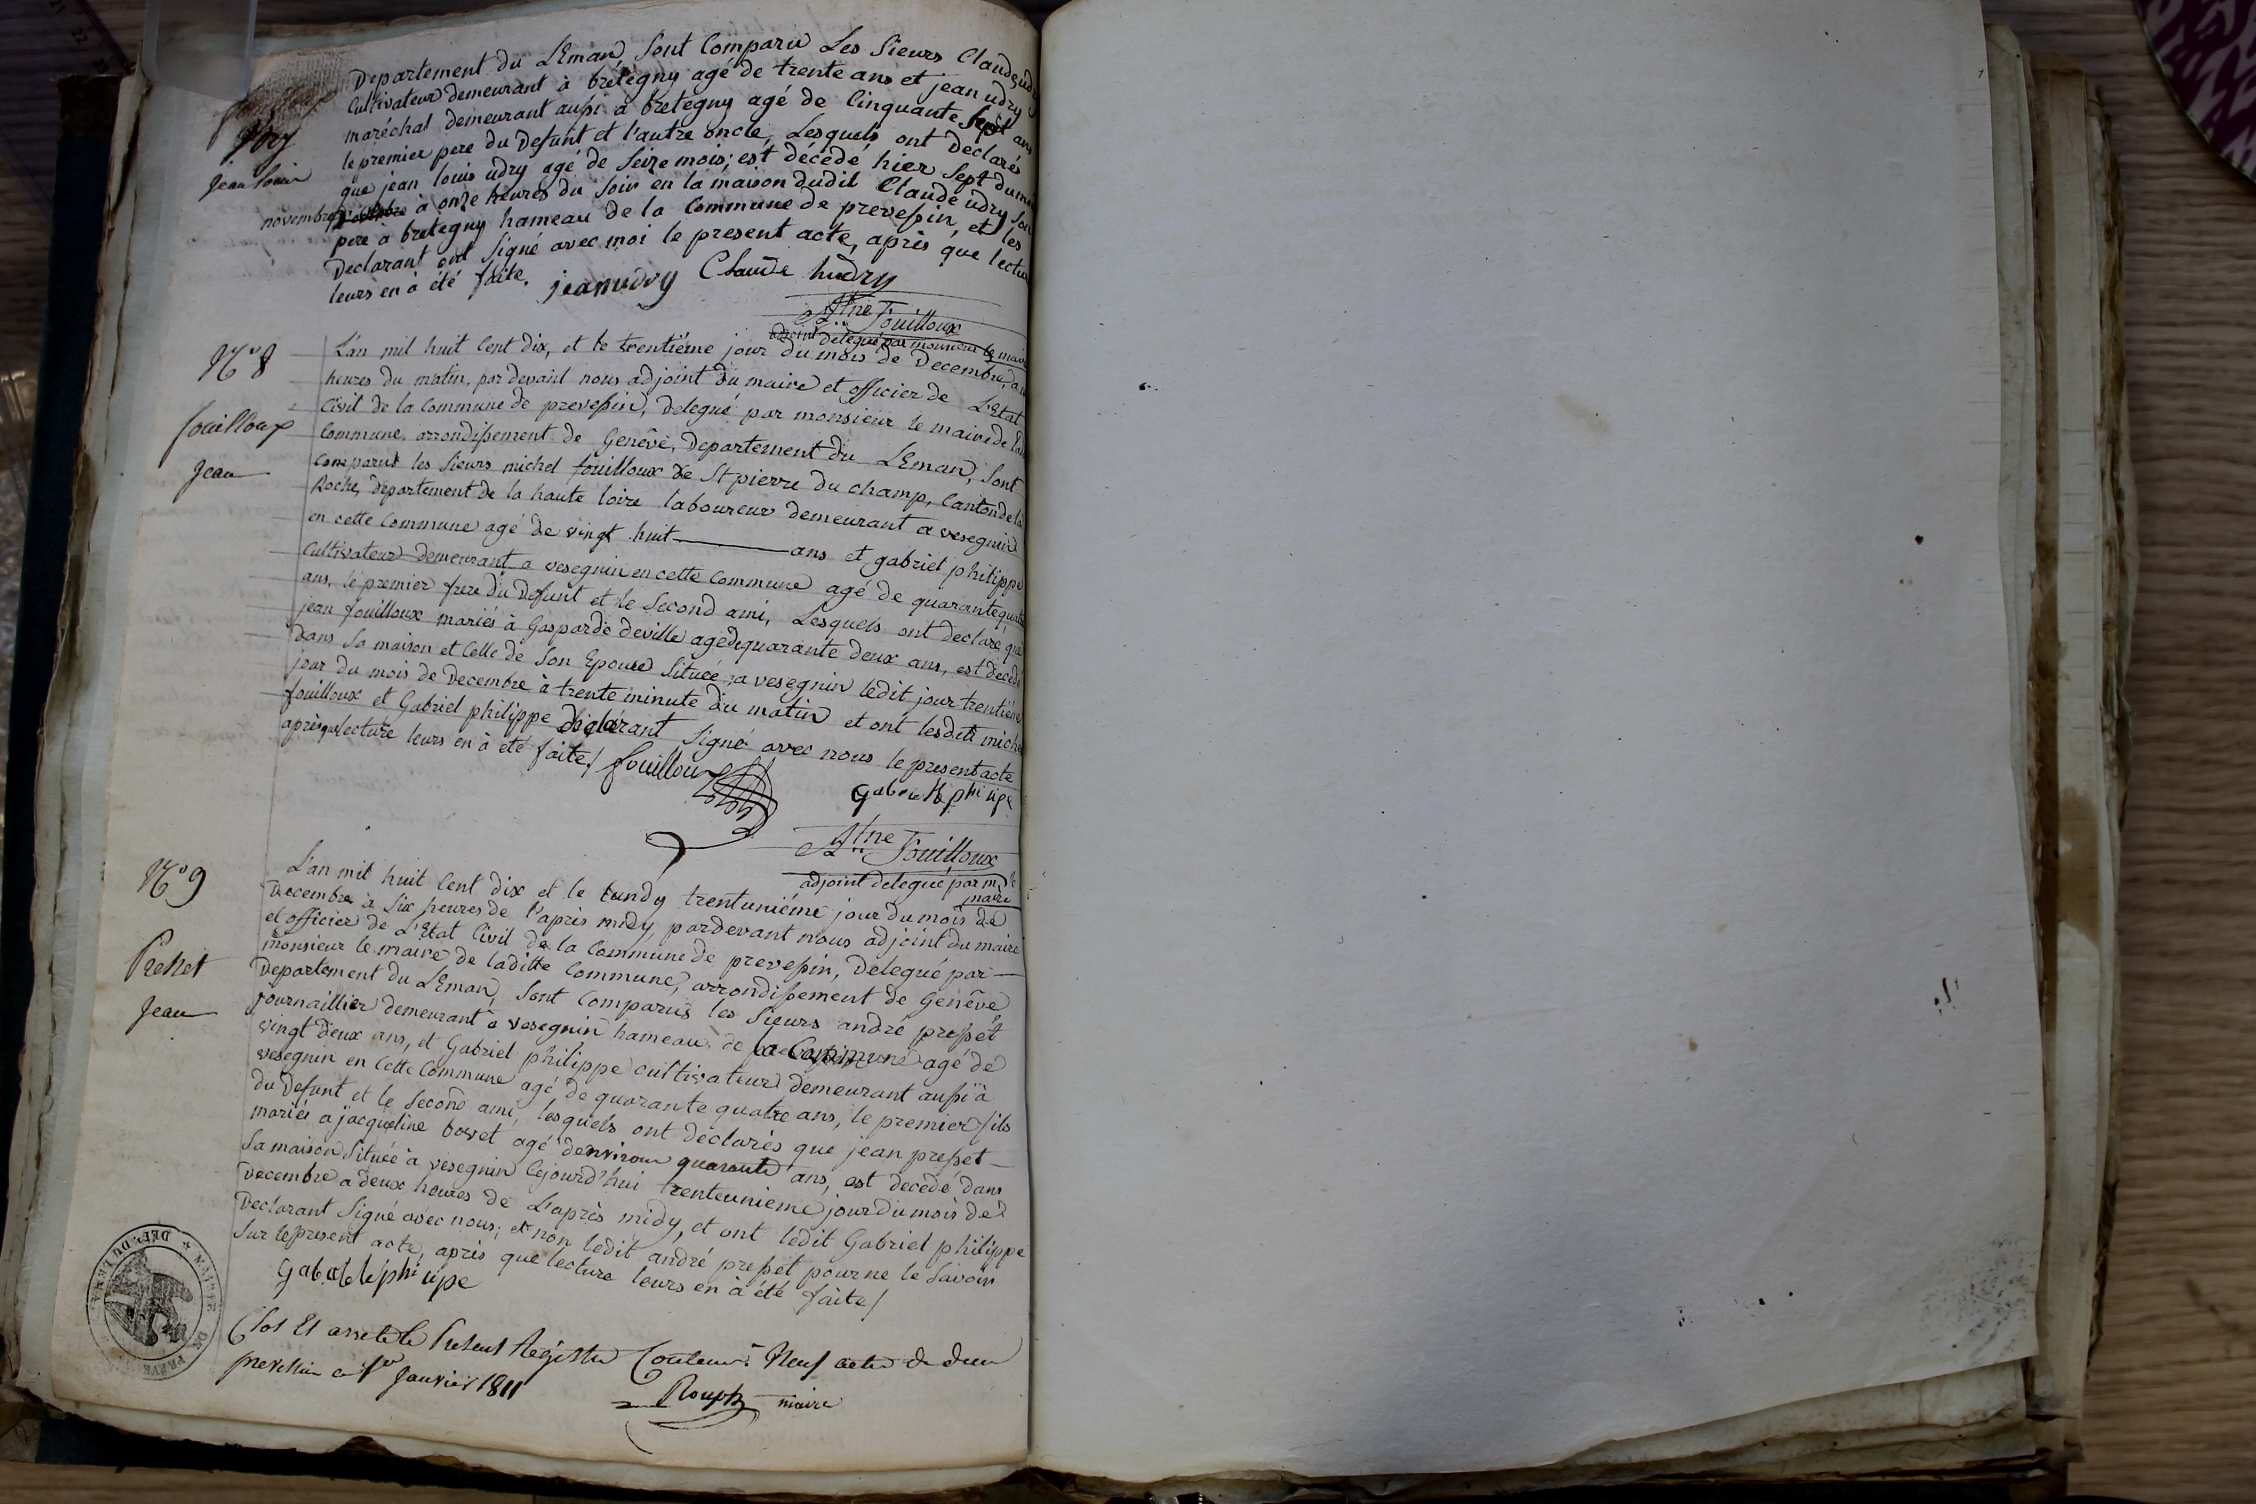 Departement du Léman, Sont Comparu Les Sieurs Claude udry
Cultivateur demeurant à bretegny agé de trente ans et jean udry
maréchal demeurant aussi à bretegny agé de Cinquante sept ans
le premier pere du Defunt et l'autre oncle, Lesquels ont Declarés
que jean louis udry agé de Seize mois; est décédé hier Sept du mois
novembre à onze heures du Soir en la maison dudit Claude udry Son
pere à bretegny hameau de la Commune de prevessin, et les
Declarant ont Signé avec moi le present acte, après que lecture
leurs en à été faite.
udry
Jean louis
jean udry Claude hudry
Atne Fouilloux
adjoint délegué par monsieur le maire
N° 8
fouilloux
Jean
L'an mil huit Cent dix, et le trentiéme jour du mois de Decembre, a
heures du matin, par devant nous adjoint du maire et officier de L'Etat
Civil de la Commune de prevessin, delegué par monsieur le maire de
Commune, arrondissement de Genêve, Departement du Léman, Sont
Comparus les Sieurs michel fouilloux de St pierre du champ, Canton de la
Roche, departement de la haute loire laboureur demeurant a vesegnin
en cette Commune agé de vingt huit ans et gabriel philippe
Cultivateur demeurant a vesegnin en cette Commune agé de quarante quatre
ans, le premier frere du Defunt et le Second ami, Lesquels ont declaré que
jean fouilloux mariés à Gasparde deville agé de quarante deux ans, est décédé
Dans Sa maison et Celle de Son Epouse Située a vesegnin ledit jour trentiéme
jour du mois de Decembre à trente minute du matin et ont lesdits michel
fouilloux et Gabriel philippe Déclarant Signé avec nous le present acte
après que lecture leurs en à été faite/ fouilloux
Gabriel philipe
Atne Fouilloux
adjoint delegué par mr le
maire
N° 9
Presset
Jean
L'an mil huit Cent dix et le Lundy trentuniéme jour du mois de
Decembre à Six heures de l'après midy, pardevant nous adjoint du maire
et officier de L'Etat Civil de la Commune de prevessin, Delegué par
monsieur le maire de laditte Commune, arrondissement de Genêve
Departement du Léman, Sont Comparus les Sieurs andré presset
journaillier demeurant à vesegnin hameau de la Commune agé de
vingt deux ans, et Gabriel philippe cultivateur demeurant aussi à
vesegnin en Cette Commune agé de quarante quatre ans, le premier fils
du Defunt et le Second ami, lesquels ont declarés que jean presset
mariés a jacqueline bovet agé denviron quarante ans, est decedé dans
Sa maison Située à vesegnin Cejourd'hui trenteunieme jour du mois de
Decembre a deux heures de L'après midy, et ont ledit Gabriel philippe
Declarant Signé avec nous; et non ledit andré presset pour ne le Savoir
Sur le present acte, après que lecture leurs en à été faite/
Gabriel philipe
Clos Et arreté le Present Registre Contenant Neuf actes de deces
prevessin ce 1er Janvier 1811
Rouph maire